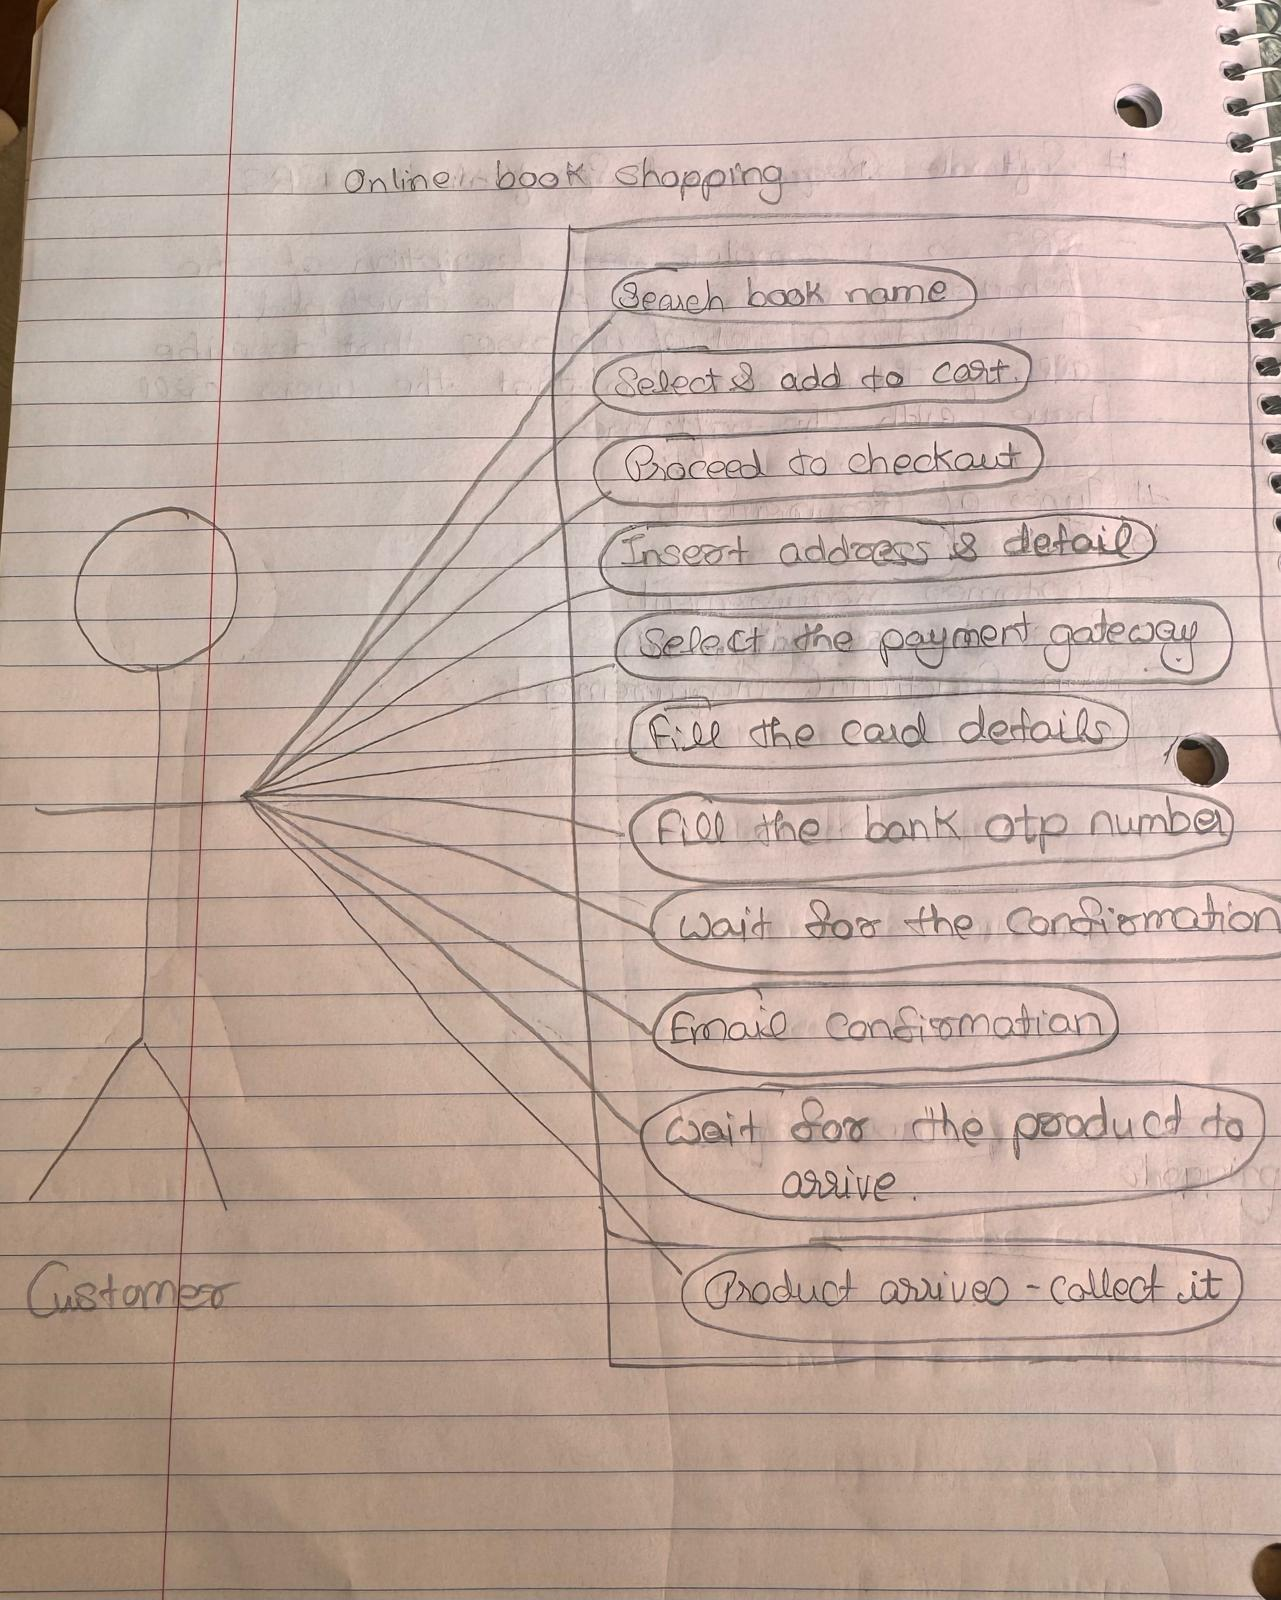 Online book shopping
Search book name
Select & add to cart.
Proceed to checkout
Insert address & detail
Select the payment gateway
Fill the card details
Fill the bank otp number
Wait for the confirmation
Email confirmation
Wait for the product to
arrive.
Product arrives - collect it
Customer